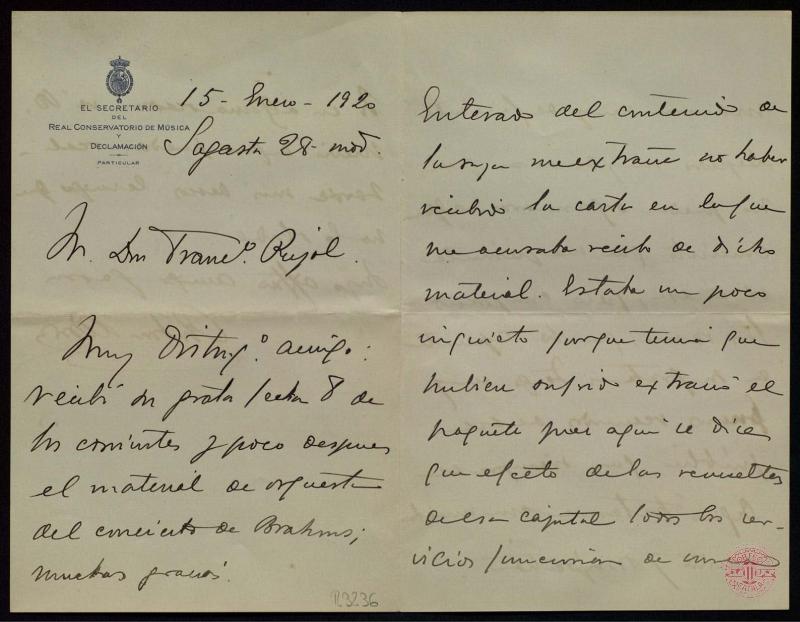 EL SECRETARIO
DEL
REAL CONSERVATORIO DE MÚSICA
Y
DECLAMACIÓN
PARTICULAR
15 - Enero - 1920
Sagasta 28 - mod.
Sr. Don Franc.º Pujol.
Muy Disting.º amigo:
recibí su grata fecha 8 de
los corrientes y poco despues
el material de orquesta
del concierto de Brahms;
muchas gracias.
R3236
Enterado del contenido de
la suya me extraña no haber
recibido la carta en la que
me acusaba recibo de dicho
material. Estaba un poco
inquieto porque temía que
hubiera sufrido extravío el
paquete pues aquí se dice
que efecto de las revueltas
de esa capital todos los ser-
vicios funcionan de